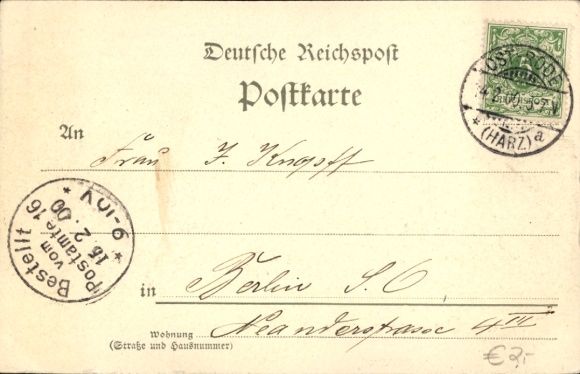 Deutsche Reichspost
Postkarte
(HARZ) a
An Frau J. Knopff
Bestellt
vom
Postamte 16
15 2. 00
9-10 V
in Berlin S. O
Neanderstrasse 4 III
Wohnung
(Straße und Hausnummer)
€ 2,-